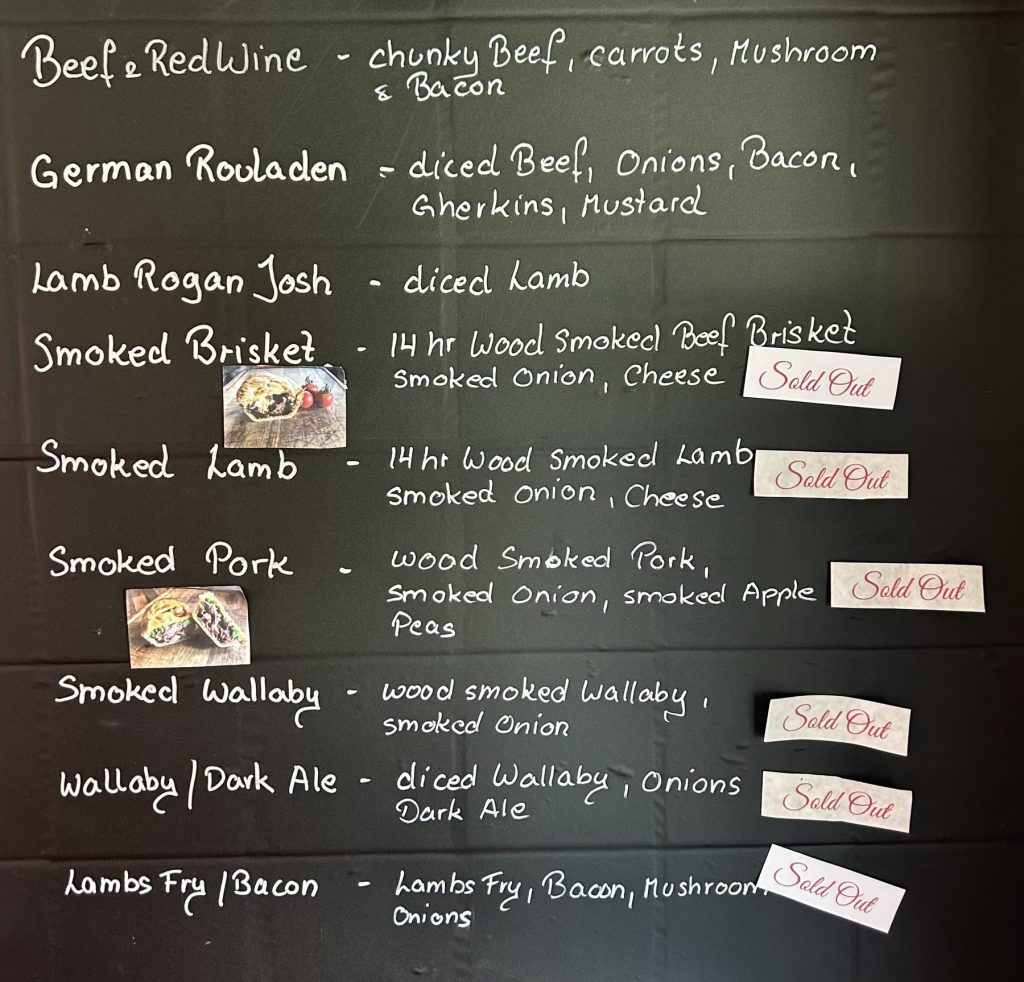 Beef & Red Wine - chunky Beef, carrots, Mushroom
& Bacon
German Rouladen - diced Beef, Onions, Bacon,
Gherkins, Mustard
Lamb Rogan Josh - diced Lamb
Smoked Brisket - 14 hr Wood Smoked Beef Brisket
smoked Onion, Cheese Sold Out
Smoked Lamb - 14 hr Wood Smoked Lamb
smoked Onion, Cheese Sold Out
Smoked Pork - wood Smoked Pork,
smoked Onion, smoked Apple Sold Out
Peas
Smoked Wallaby - wood smoked Wallaby,
smoked Onion Sold Out
Wallaby/Dark Ale - diced Wallaby, Onions
Dark Ale Sold Out
Lambs Fry/Bacon - Lambs Fry, Bacon, Mushroom, Sold Out
Onions